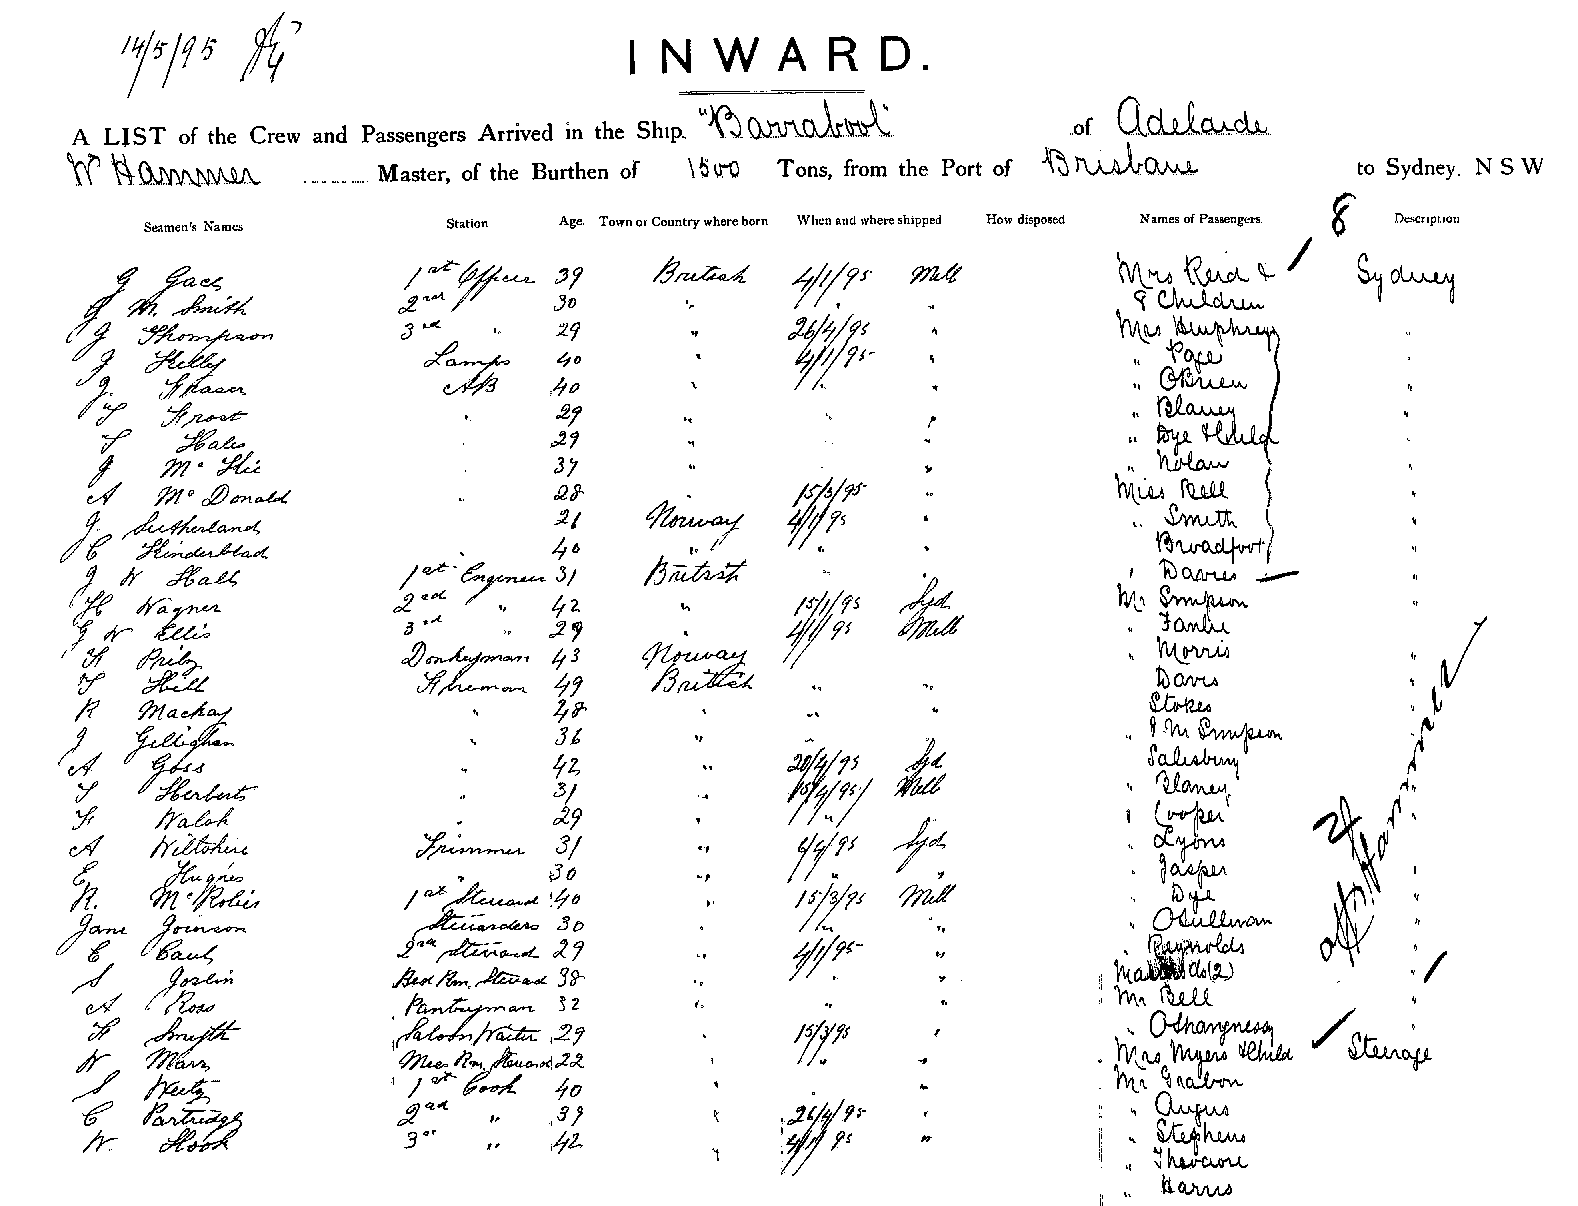 14/5/95
INWARD.
A LIST of the Crew and Passengers Arrived in the Ship. "Barrabool" of Adelaide
Wm Hammer Master, of the Burthen of 1500 Tons, from the Port of Brisbane to Sydney. N S W
Seamen's Names Station Age. Town or Country where born When and where shipped How disposed Names of Passengers. 8 Description
G 1st Officer 39 British 4/1/95 Mell Mrs Reid & Sydney
G M. Smith 2nd " 30 " " " 8 Children
J Thompson 3rd " 29 " 26/4/95 " Mrs Humphreys "
J Kelly Lamps 40 " 4/1/95 " " Page
J. Fraser AB 40 " " " " OBrien "
T Frost " 29 " " " " Blaney "
T Hales " 29 " " " " Dye & Child
J 37 " " " Nolan "
A McDonald " 28 " 15/3/95 " Miss Bell "
J. Sutherland 21 Norway 4/1/95 " " Smith "
C Kinderblad " 40 " " " Broadfoot "
J W Hall 1st Engineer 31 British " " " Davies "
H Wagner 2nd " 42 " 15/1/95 Syd Mr Simpson "
G W Ellis 3rd " 29 " 4/1/95 Mell "
F Donkeyman 43 Norway " Morris "
T Hill Fireman 49 British " " Davis "
R Mackay " 48 " " " Stokes
J Gillighan " 36 " " " " J M Simpson
A Goss " 42 " 20/4/95 Syd Salisbury
T Herberts " 31 " 15/4/95 Mell " Blaney
F Walsh " 29 " " " Cooper
A Wiltshire Trimmer 31 " 6/4/95 Syd " Lyons
E. Hughes " 30 " " Jasper
R. McRobies 1st Steward 40 " 15/3/95 Mell " Dye
Jane Joinson Stewardess 30 " " " " OSullivan "
C 2nd Steward 29 " 4/1/95 " " Reynolds "
S Joslin Bed Rm. Steward 38 " " Do (2) "
A Ross Pantryman 32 " " " Mr Bell "
F Smyth Saloon Waiter 29 " 15/3/95 " " OShangnessy "
W Marr Mess Rm. Steward 22 " " " Mrs Myers & Child Steerage
S 1st Cook 40 " " " Mr Grabon
C Partridge 2nd " 39 " 26/4/95 " " Angus
W. Hook 3rd " 42 " 4/1/95 " " Stephens
" Theodore
" Harris